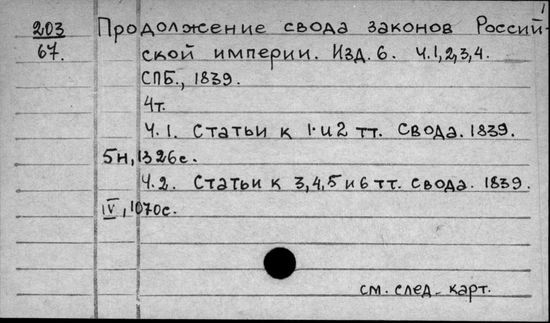 1
203 Продолжение свода законов Россий-
67. ской империи. Изд. 6. Ч.1,2,3,4.
СПБ., 1839.
4т.
Ч.1. Статьи к 1·и2 тт. Свода. 1839.
5н, 1326с.
Ч.2. Статьи к 3,4,5 и 6 тт. свода. 1839.
IV, 1070с.
см. след. карт.